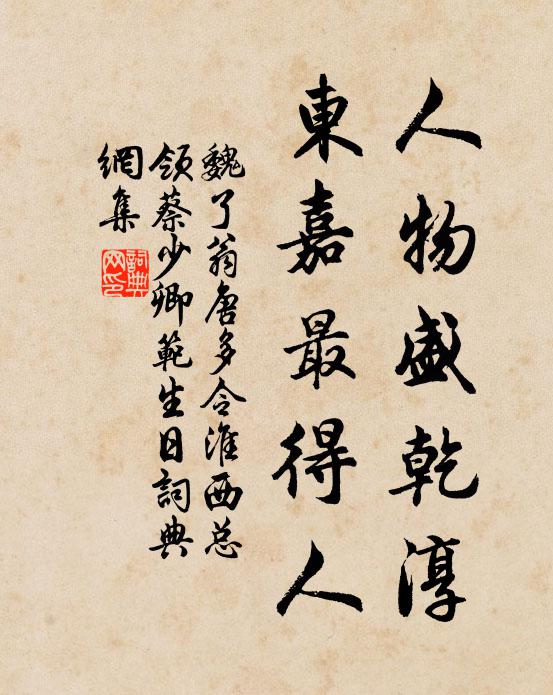 人物盛乾淳
東嘉最得人
魏了翁唐多令淮西总
领蔡少卿範生日詞典
網集
詞典網印